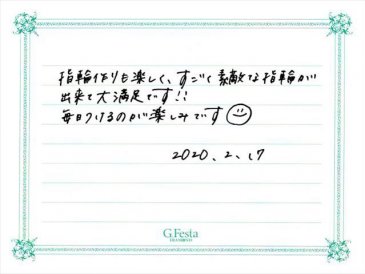 指輪作りも楽しく、すごく素敵な指輪が
出来て大満足です!!
毎日つけるのが楽しみです
2020.2.17
G.Festa